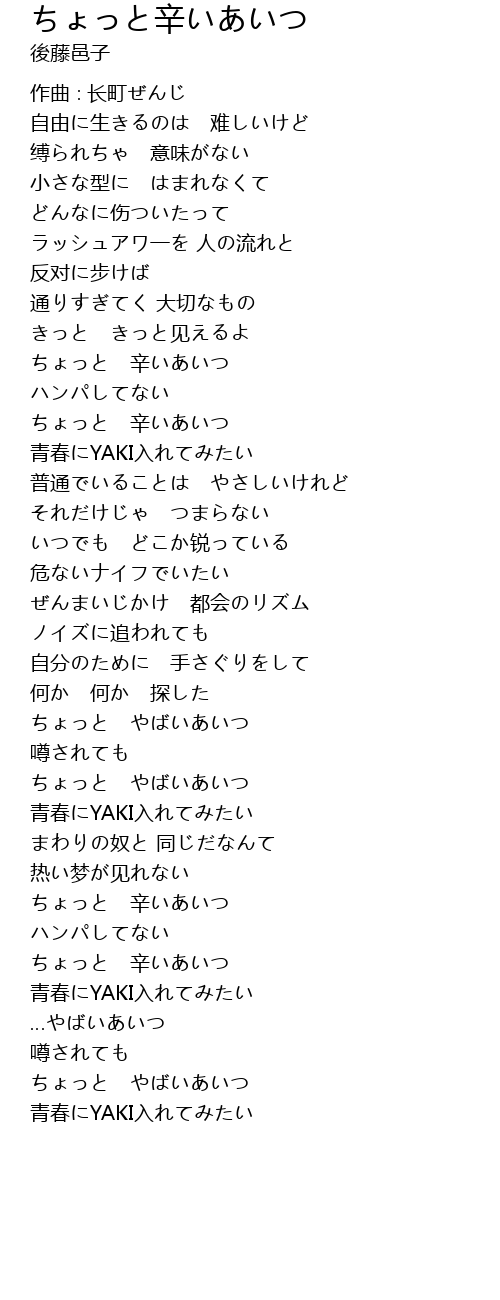 ちょっと辛いあいつ
後藤邑子
作曲 : 长町ぜんじ
自由に生きるのは　难しいけど
缚られちゃ　意味がない
小さな型に　はまれなくて
どんなに伤ついたって
ラッシュアワ—を 人の流れと
反对に步けば
通りすぎてく 大切なもの
きっと　きっと见えるよ
ちょっと　辛いあいつ
ハンパしてない
ちょっと　辛いあいつ
青春にYAKI入れてみたい
普通でいることは　やさしいけれど
それだけじゃ　つまらない
いつでも　どこか锐っている
危ないナイフでいたい
ぜんまいじかけ　都会のリズム
ノイズに追われても
自分のために　手さぐりをして
何か　何か　探した
ちょっと　やばいあいつ
噂されても
ちょっと　やばいあいつ
青春にYAKI入れてみたい
まわりの奴と 同じだなんて
热い梦が见れない
ちょっと　辛いあいつ
ハンパしてない
ちょっと　辛いあいつ
青春にYAKI入れてみたい
...やばいあいつ
噂されても
ちょっと　やばいあいつ
青春にYAKI入れてみたい